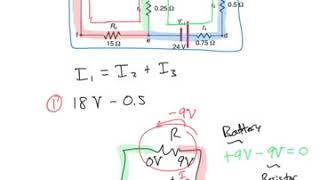 0.25 Ω
0.5 Ω
f
e
d
15 Ω
24 V
0.75 Ω
I₁ = I₂ + I₃
①' 18V - 0.5
-9V
R
0V 9V
Battery
+9V - 9V = 0
Resistor